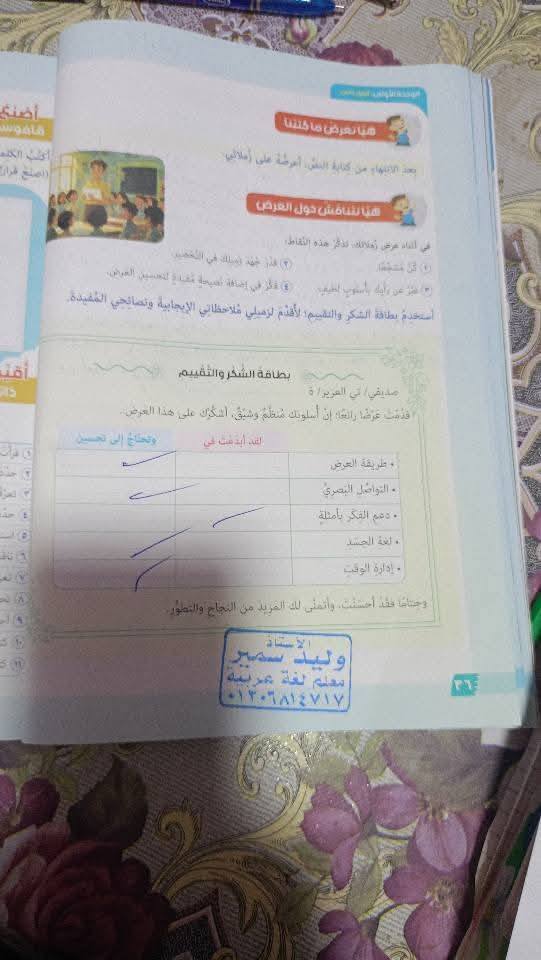 الوحدة الأولى
هيا نعرض ما كتبنا
بعد الانتهاء من كتابة النص، أعرضه على زملائي.
هيا نتناقش حول العرض
في أثناء عرض زملائك، تذكر هذه النقاط:
١ كن مشجعًا. ٢ قدر جهد زميلك في التحضير.
٣ عبر عن رأيك بأسلوب لطيف. ٤ فكر في إضافة نصيحة مفيدة لتحسين العرض.
أستخدم بطاقة الشكر والتقييم؛ لأقدم لزميلي ملاحظاتي الإيجابية ونصائحي المفيدة.
بطاقة الشكر والتقييم
صديقي/ تي العزيز/ ة
قدمت عرضًا رائعًا؛ إن أسلوبك منظم وشيق، أشكرك على هذا العرض.
لقد أبدعت في وتحتاج إلى تحسين
• طريقة العرض
• التواصل البصري
• دعم الفكر بأمثلة
• لغة الجسد
• إدارة الوقت
وختامًا فقد أحسنت، وأتمنى لك المزيد من النجاح والتطور.
الأستاذ
وليد سمير
معلم لغة عربية
٠١٢٠٦٨١٤٧١٧
٣٦